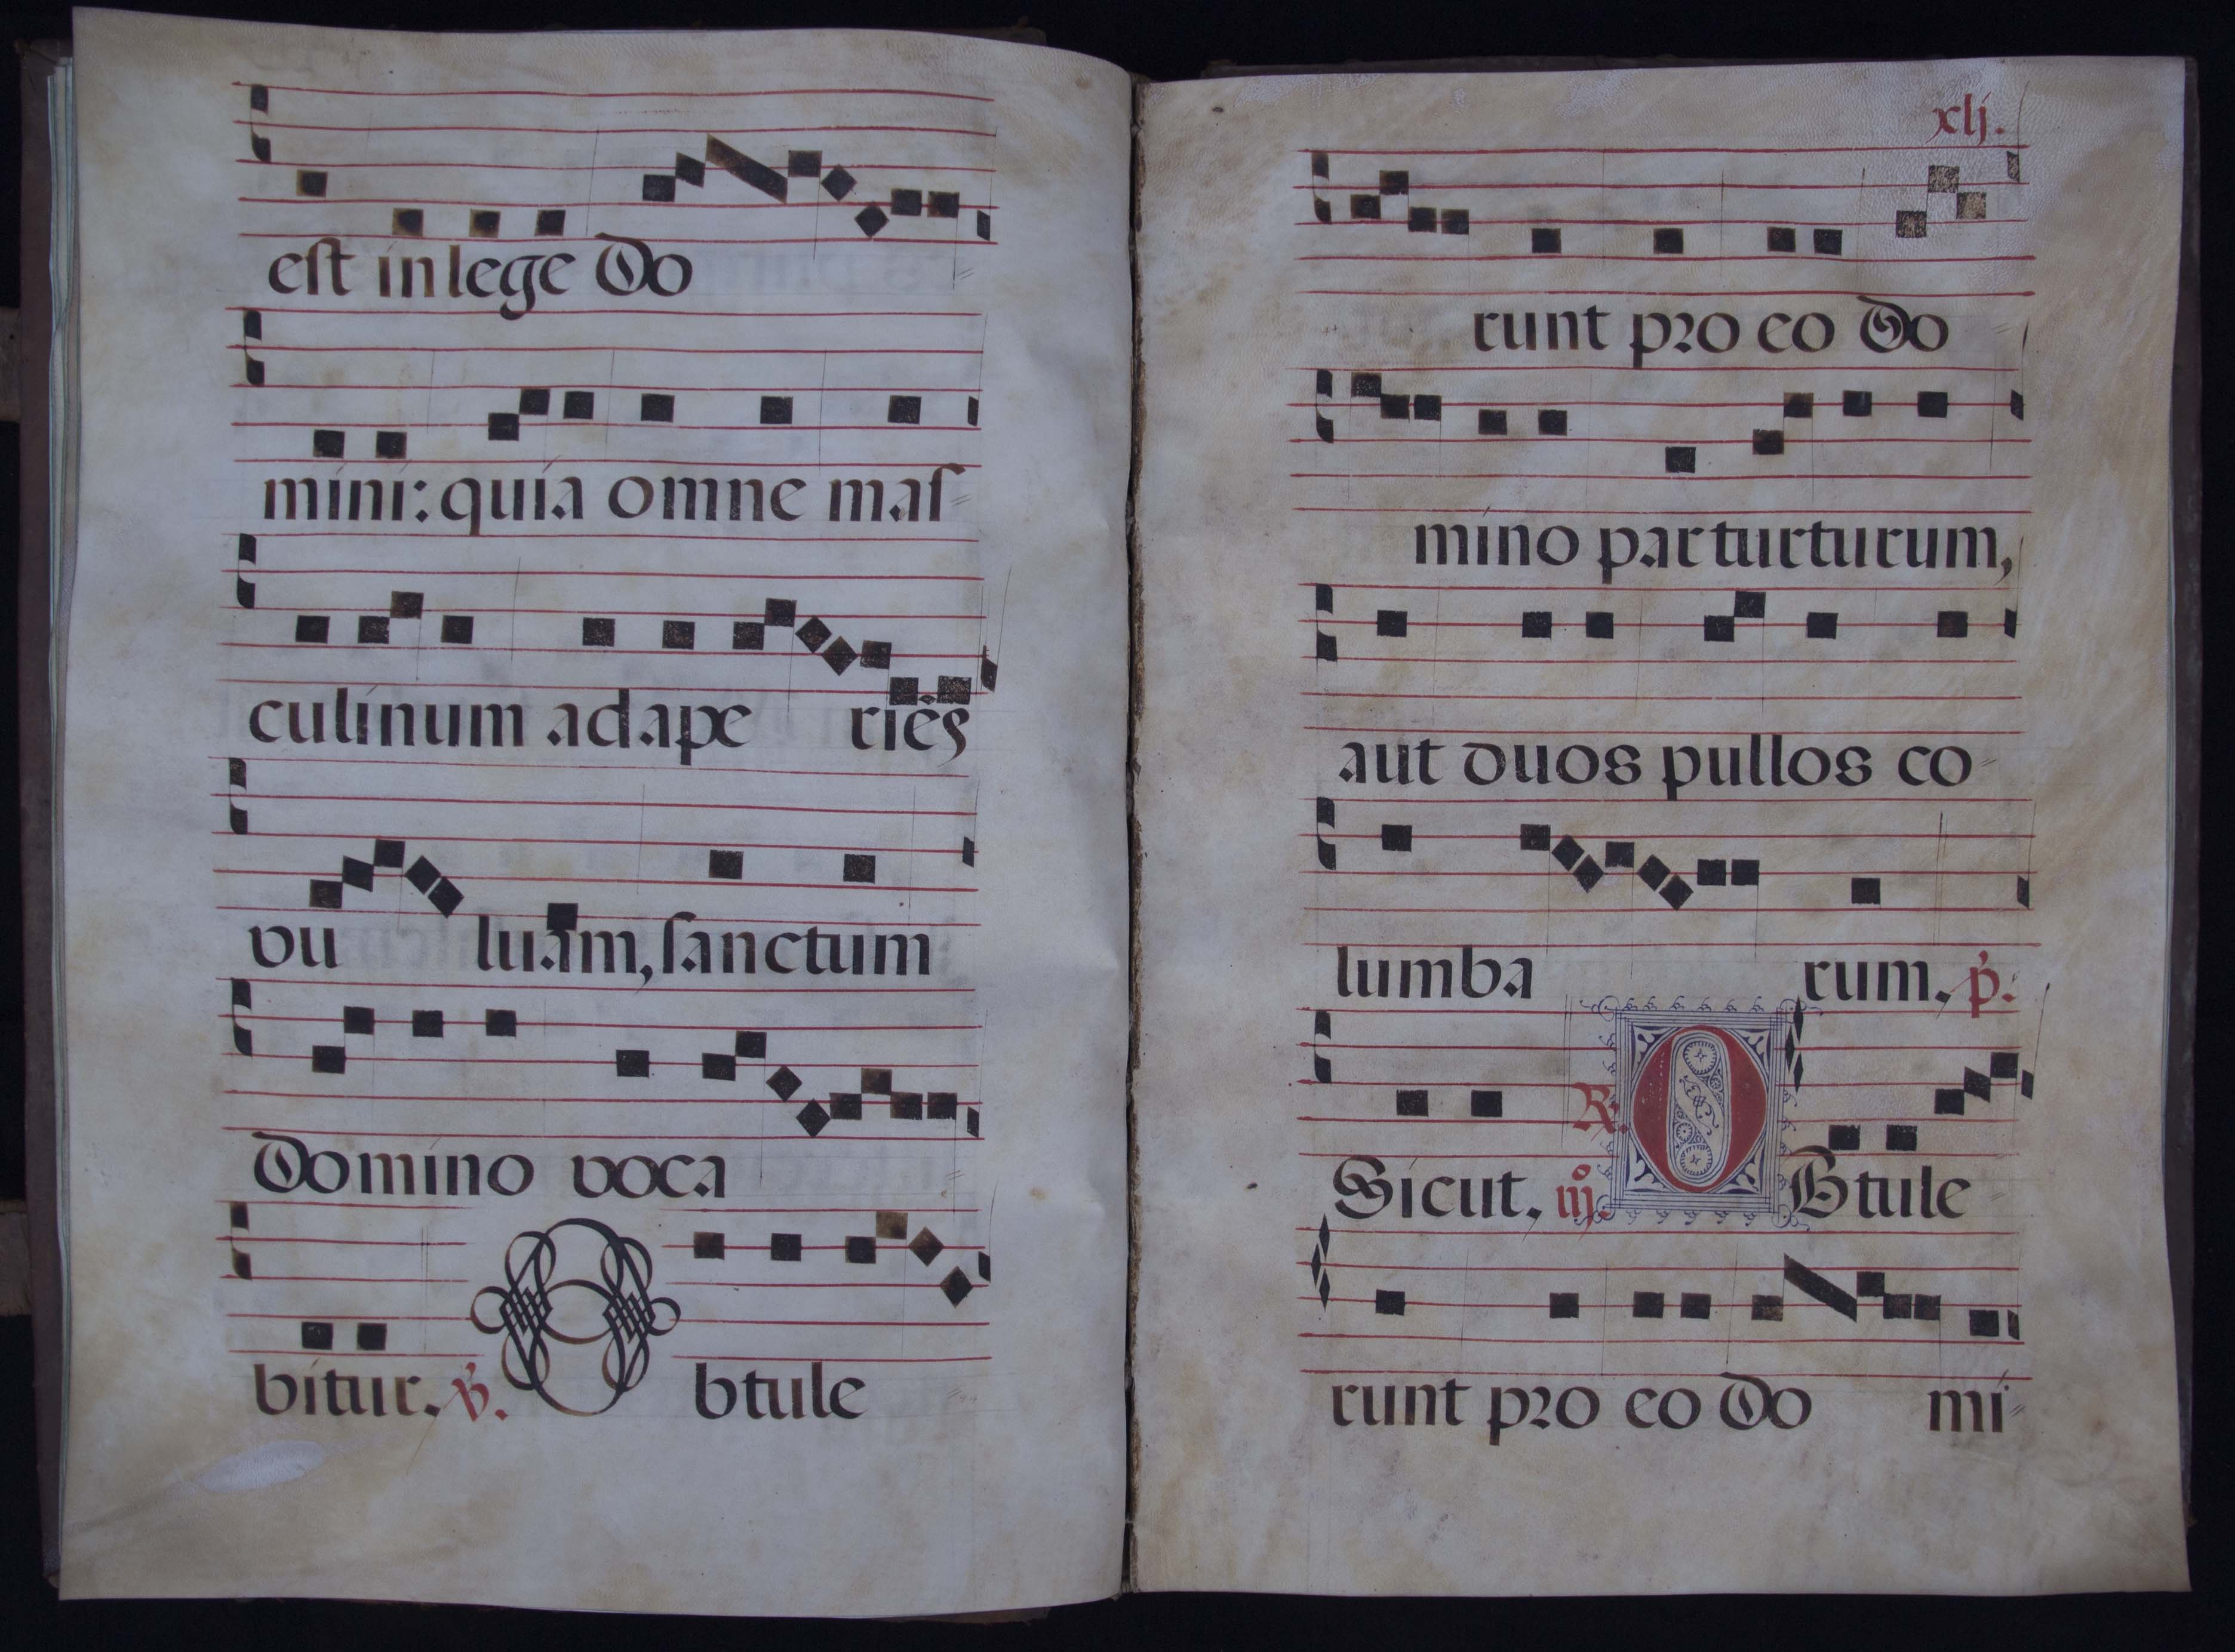 est in lege Do
mini: quia omne mas
culinum adape riẽs
vu luam, sanctum
Domino voca
bitur. V. Obtule
xlj.
runt pro eo Do
mino par turturum,
aut duos pullos co
lumba rum. p.
Sicut. iij. R. OBtule
runt pro eo Do mi